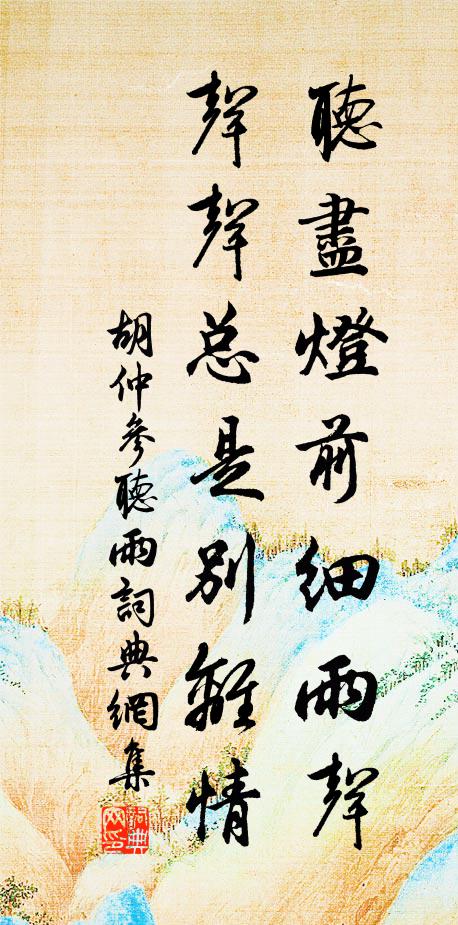 聽盡燈前細雨聲
聲聲总是别離情
胡仲參聽雨詞典網集
詞典
网印